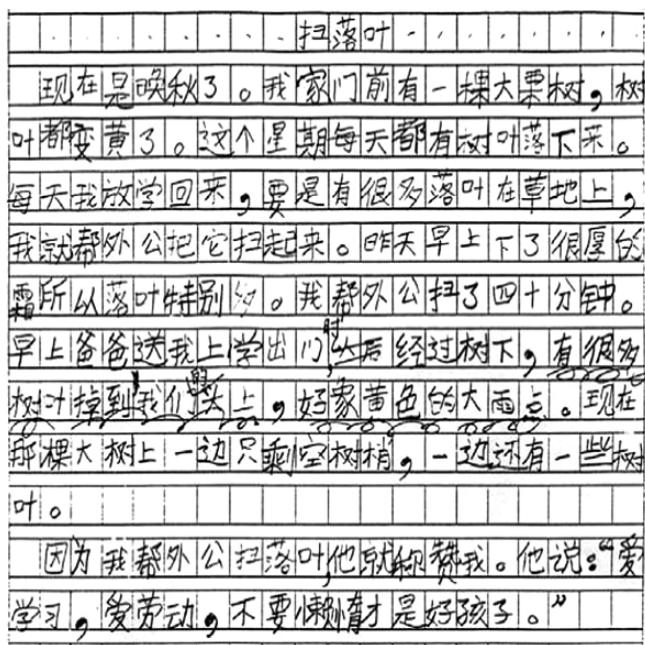 扫落叶
现在是晚秋了。我家门前有一棵大栗树，树
叶都变黄了。这个星期每天都有树叶落下来。
每天我放学回来，要是有很多落叶在草地上，
我就帮外公把它扫起来。昨天早上下了很厚的
霜所以落叶特别多。我帮外公扫了四十分钟。
早上爸爸送我上学出门时，经过树下，有很多
树叶掉到了我们头上，好象黄色的大雨点。现在
那棵大树上一边只剩空树梢，一边还有一些树
叶。
因为我帮外公扫落叶，他就称赞我。他说：“爱
学习，爱劳动，不要懒惰才是好孩子。”